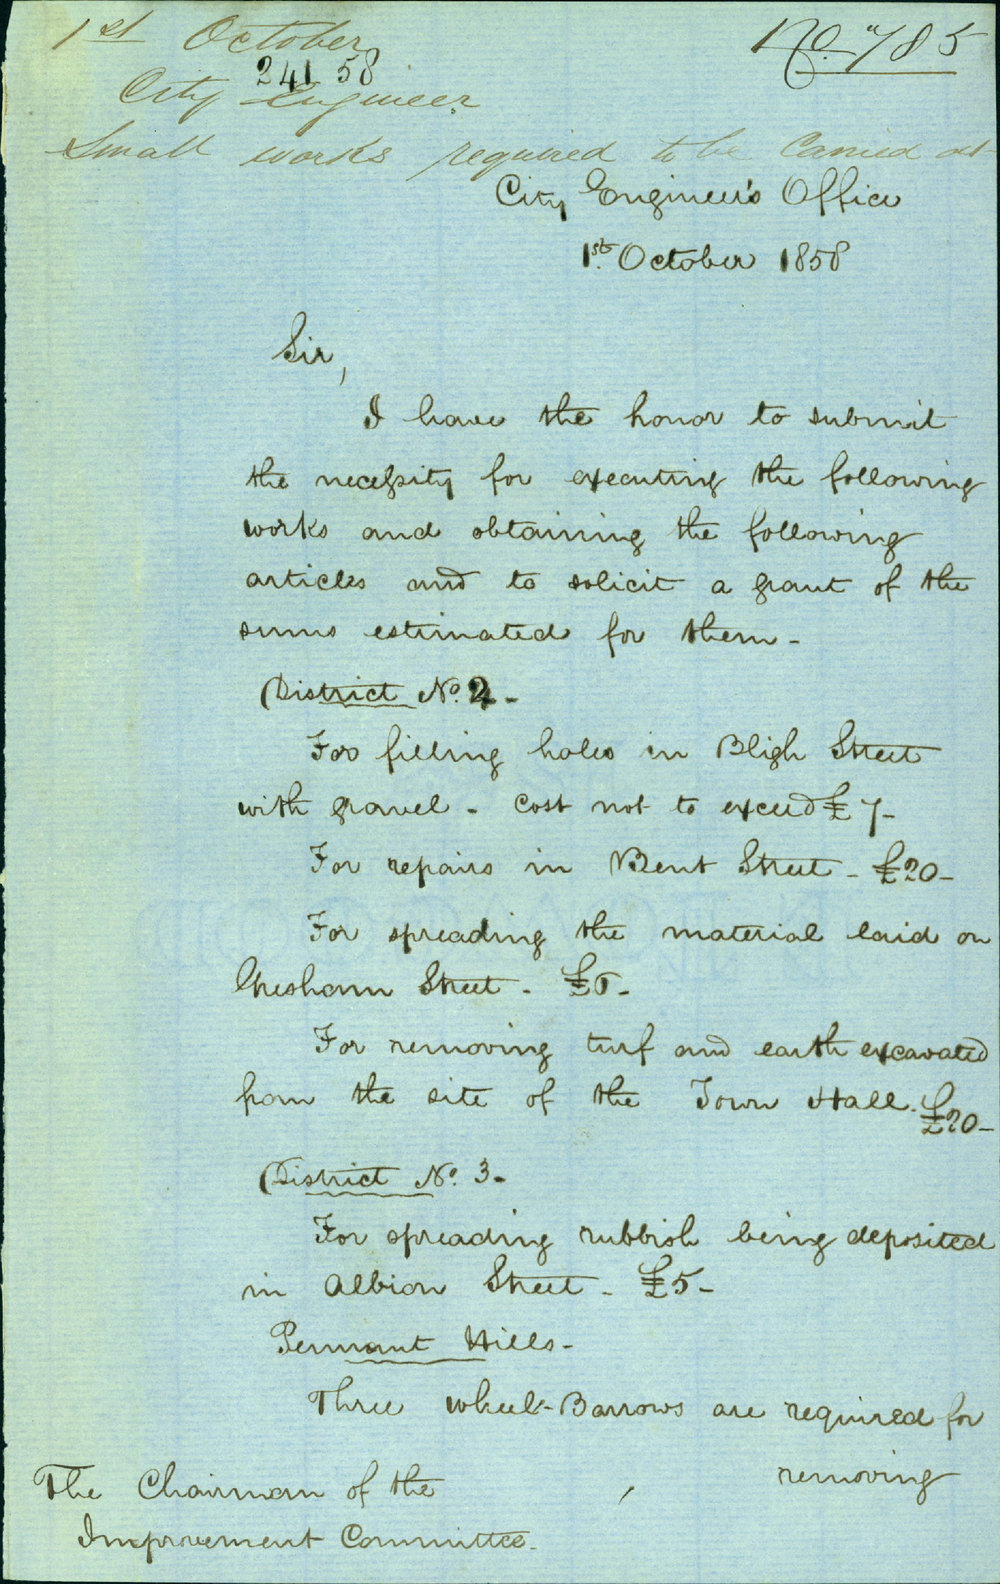 1st October
No. 785
241 58
City Engineer
Small works required to be Carried out
City Engineer's Office
1st. October 1858
Sir,
I have the honor to submit
the necessity for executing the following
works and obtaining the following
articles and to solicit a grant of the
sums estimated for them -
District No. 2 -
For filling holes in Bligh Street
with gravel - Cost not to exceed £7 -
For repairs in Bent Street - £20 -
For spreading the material laid on
Gresham Street - £5 -
For removing turf and earth excavated
from the site of the Town Hall. £20 -
District No. 3 -
For spreading rubbish being deposited
in Albion Street - £5 -
Pennant Hills -
Three wheel-Barrows are required for
removing
The Chairman of the
Improvement Committee -